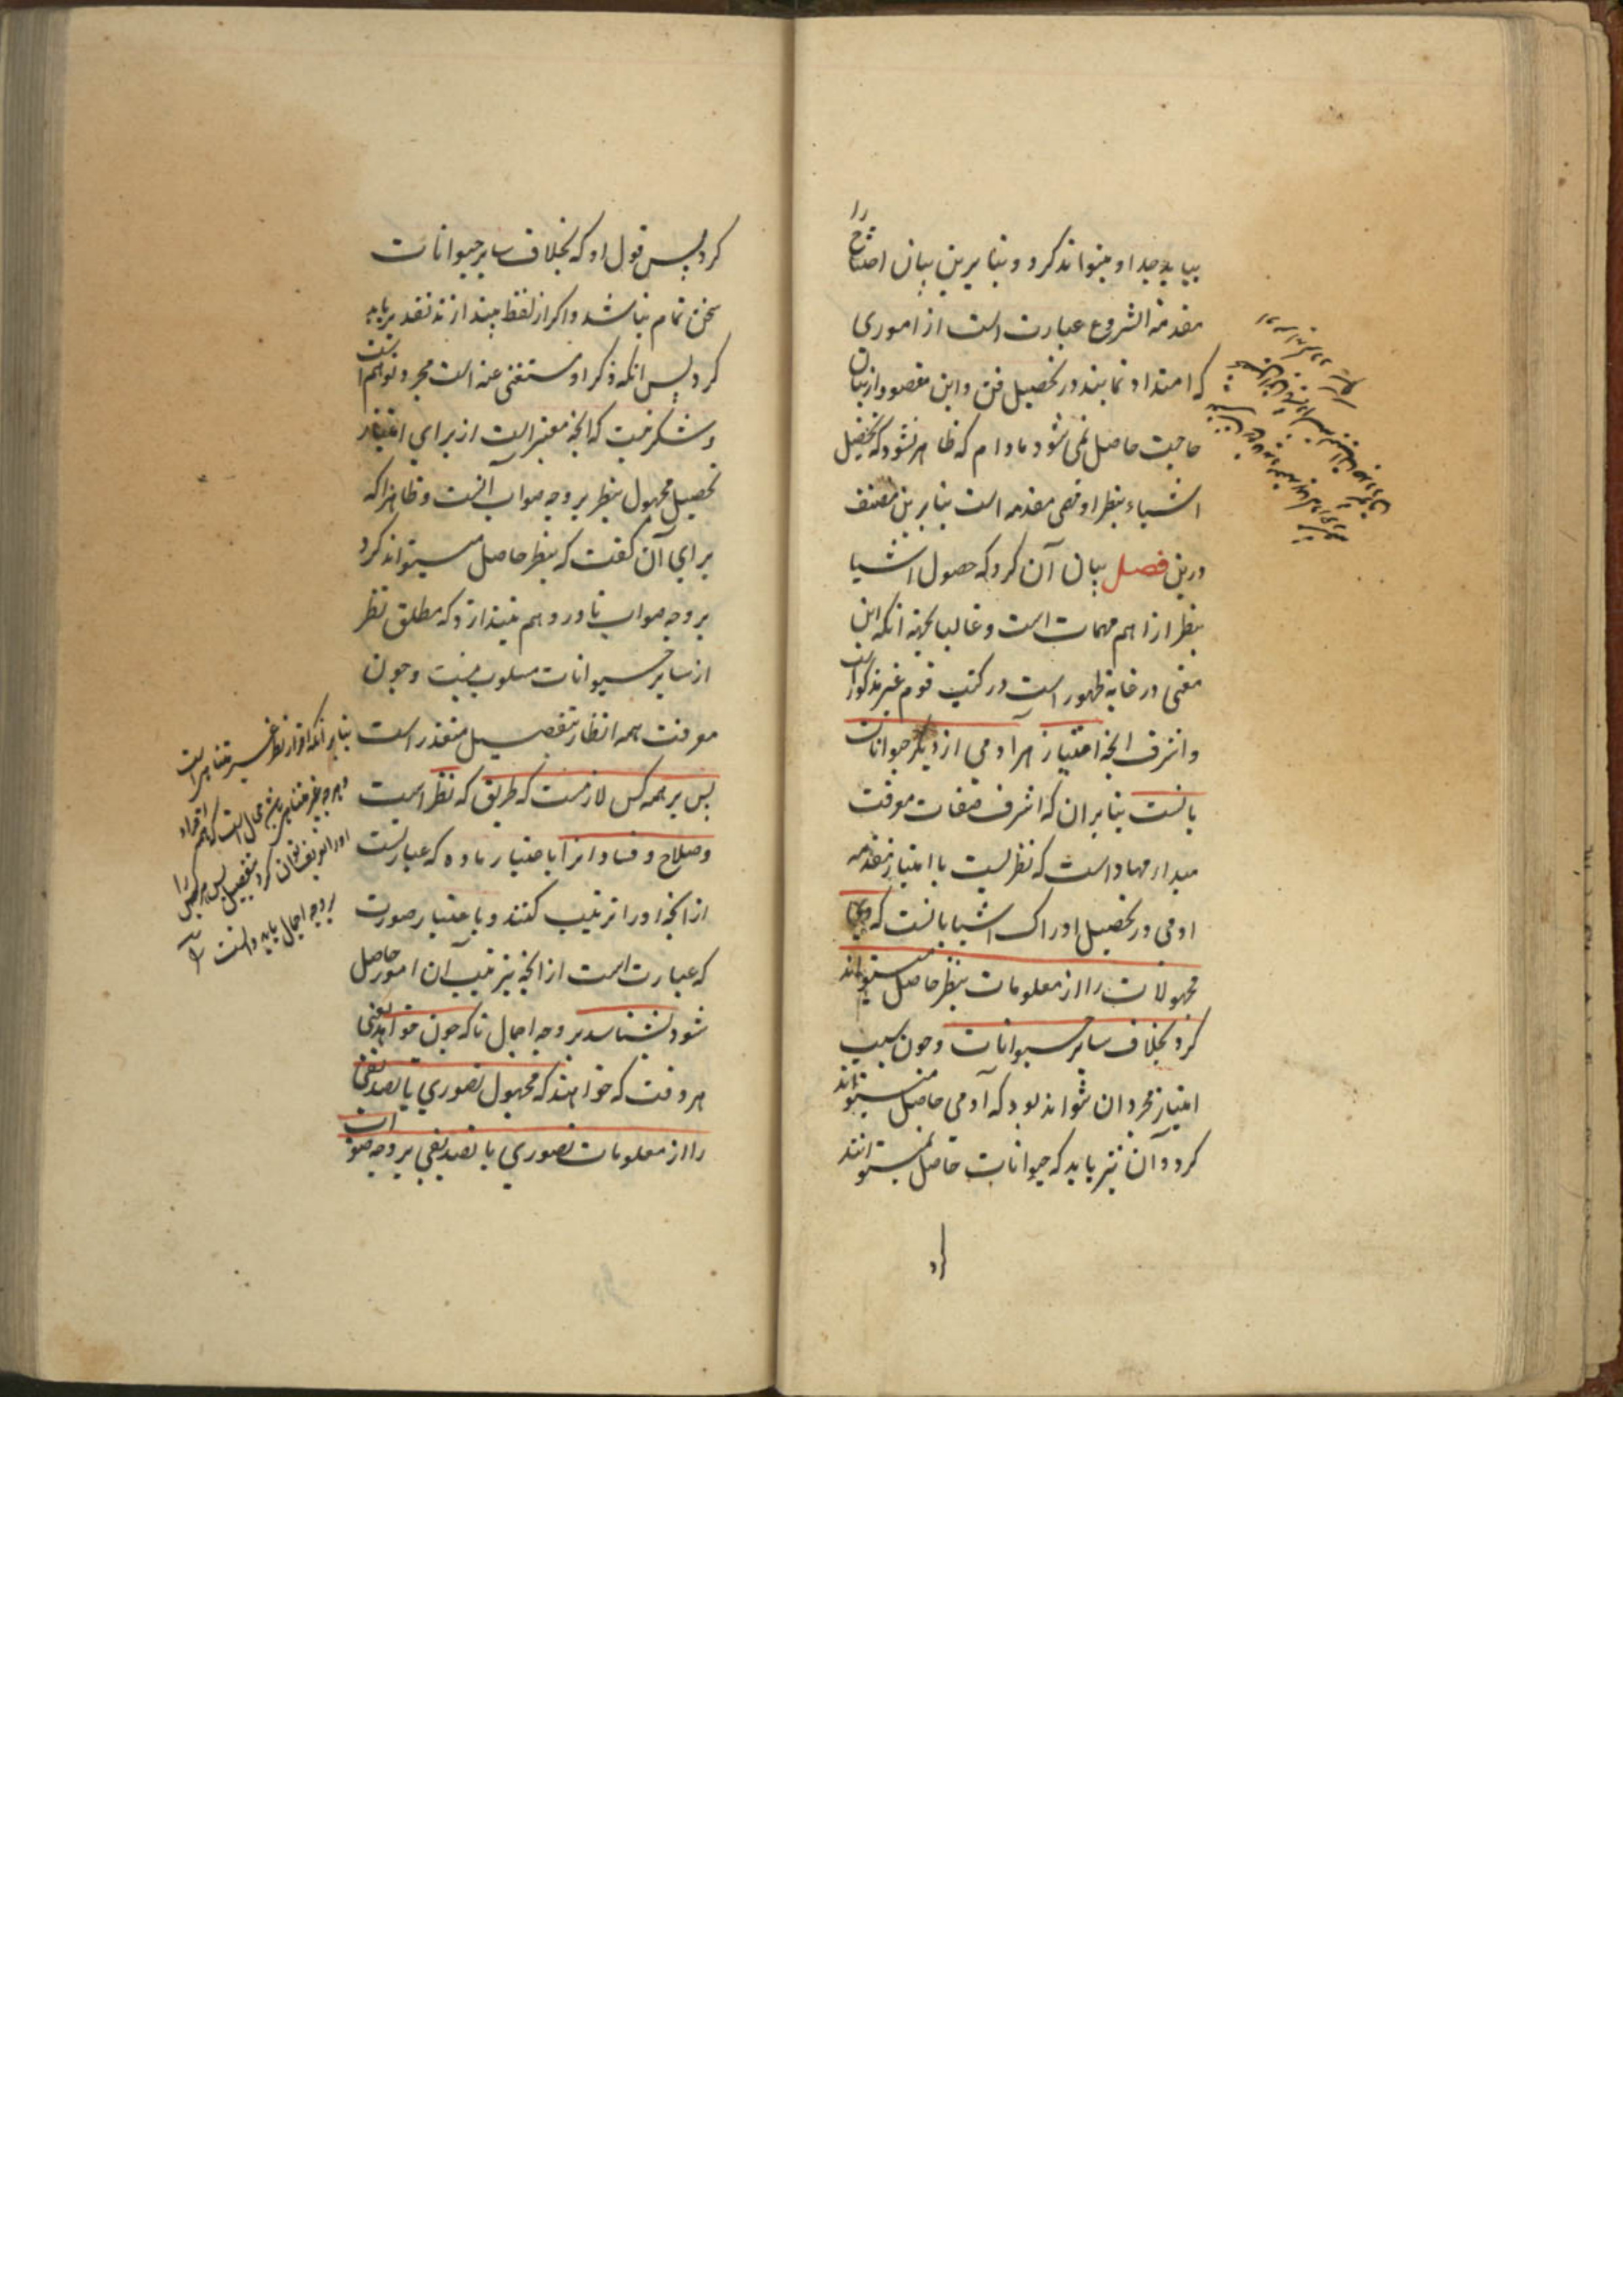 بیاید جدا و میتواند کرد و بنابرین بیان احتیاج را
مقدمة الشروع عبارت است از اموری
که امتداد نمایند در تحصیل فن و این مقصود از بیان
حاجت حاصل نمی شود مادام که ظاهر نشود که تحصیل
اشیاء بنظر اقصی مقدمه است بنابرین مصنف
درین فصل بیان آن کرد که حصول اشیا
بنظر از اهم مهمات است و غالبا بجهة آنکه این
معنی در غایة ظهور است در کتب قوم غیر مذکور است
و اشرف آنچه امتیاز هر آدمی از دیگر حیوانات
بانست بنابران که اشرف صفات معرفت
مبدا و معاد است که نظریست با امتیاز مقدمه
ادمی در تحصیل ادراک اشیا بانست که وی
مجهولات را از معلومات بنظر حاصل میتواند
کرد بخلاف سایر حیوانات و چون سبب
امتیاز مجرد ان نتواند بود که آدمی حاصل میتواند
کرد و آن نیز باید که حیوانات حاصل نمیتوانند
کرد
کرد پس قول او که بخلاف سایر حیوانات
سخن تمام نباشد و اگر از لفظ بیندازند تقدیر باید
کرد پس آنکه ذکر او مستغنی عنه است مجرد توهم است
و شک نیست که آنچه معتبر است از برای امتیاز
تحصیل مجهول بنظر بر وجه صواب آنست و ظاهرا که
برای آن گفت که بنظر حاصل میتواند کرد
بر وجه صواب تا در وهم نیندازد که مطلق نظر
از سایر حیوانات مسلوب نیست و چون
معرفت همه انظار بتفصیل متعذر است
پس بر همه کس لازمست که طریق که نظر است
و صلاح و فساد انرا باعتبار ماده که عبارتست
از آنچه او را ترتیب کنند و باعتبار صورت
که عبارت است از آنچه بترتیب آن امور حاصل
شود بشناسد بر وجه اجمال تا که چون خواهد یعنی
هر وقت که خواهند که مجهول تصوری یا تصدیقی
را از معلومات تصوری یا تصدیقی بر وجه صواب
بنابر آنکه افراد نظر غیر متناهی است
و هر چه غیر متناهی باشد محال است که همه افراد
او را تعریف توان کرد بتفصیل پس همه کس را
بر وجه اجمال باید دانست